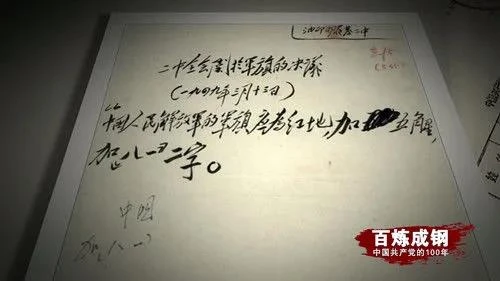 二中全会关于军旗的决议
(一九四九年三月十三日)
中国人民解放军的军旗应为红地,加五角星,
加八一二字。
中国
加八一
百炼成钢
中国共产党的100年